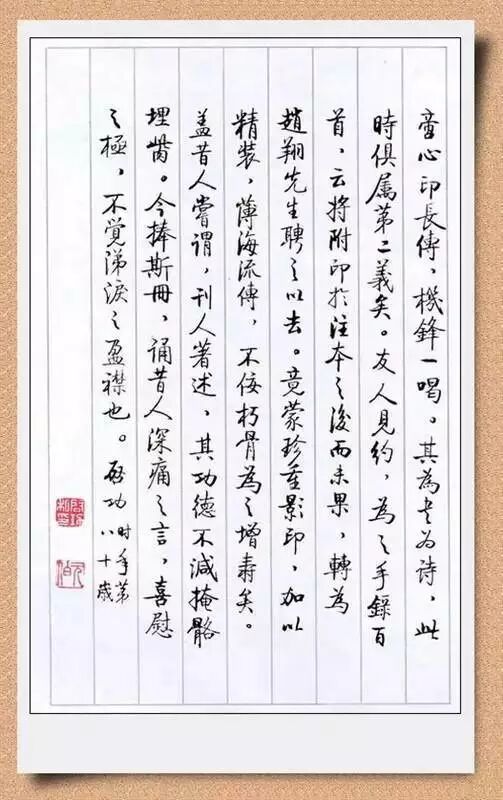 童心印長傳，機鋒一喝。其為書為诗，此
時俱属第二義矣。友人見約，為之手錄百
首，云將附印於注本之後而未果，轉為
趙翔先生聘之以去。竟蒙珍重影印，加以
精裝，薄海流傳，不佞朽骨為之增壽矣。
盖昔人嘗謂，刊人著述，其功德不減掩骼
埋胔。今捧斯冊，诵昔人深痛之言，喜慰
之極，不覺涕淚之盈襟也。啟功
時年第
八十歲